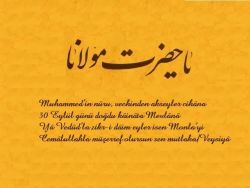 يا حضرت مولانا
Muhammed'in nûru, vechinden akseyler cihâna
30 Eylül günü doğdu kâinâta Mevlânâ
Yâ Vedûd'la zikr-i dâim eyler isen Monla'yi
Cemâlullahla müşerref olursun sen mutlaka/Veysiyâ